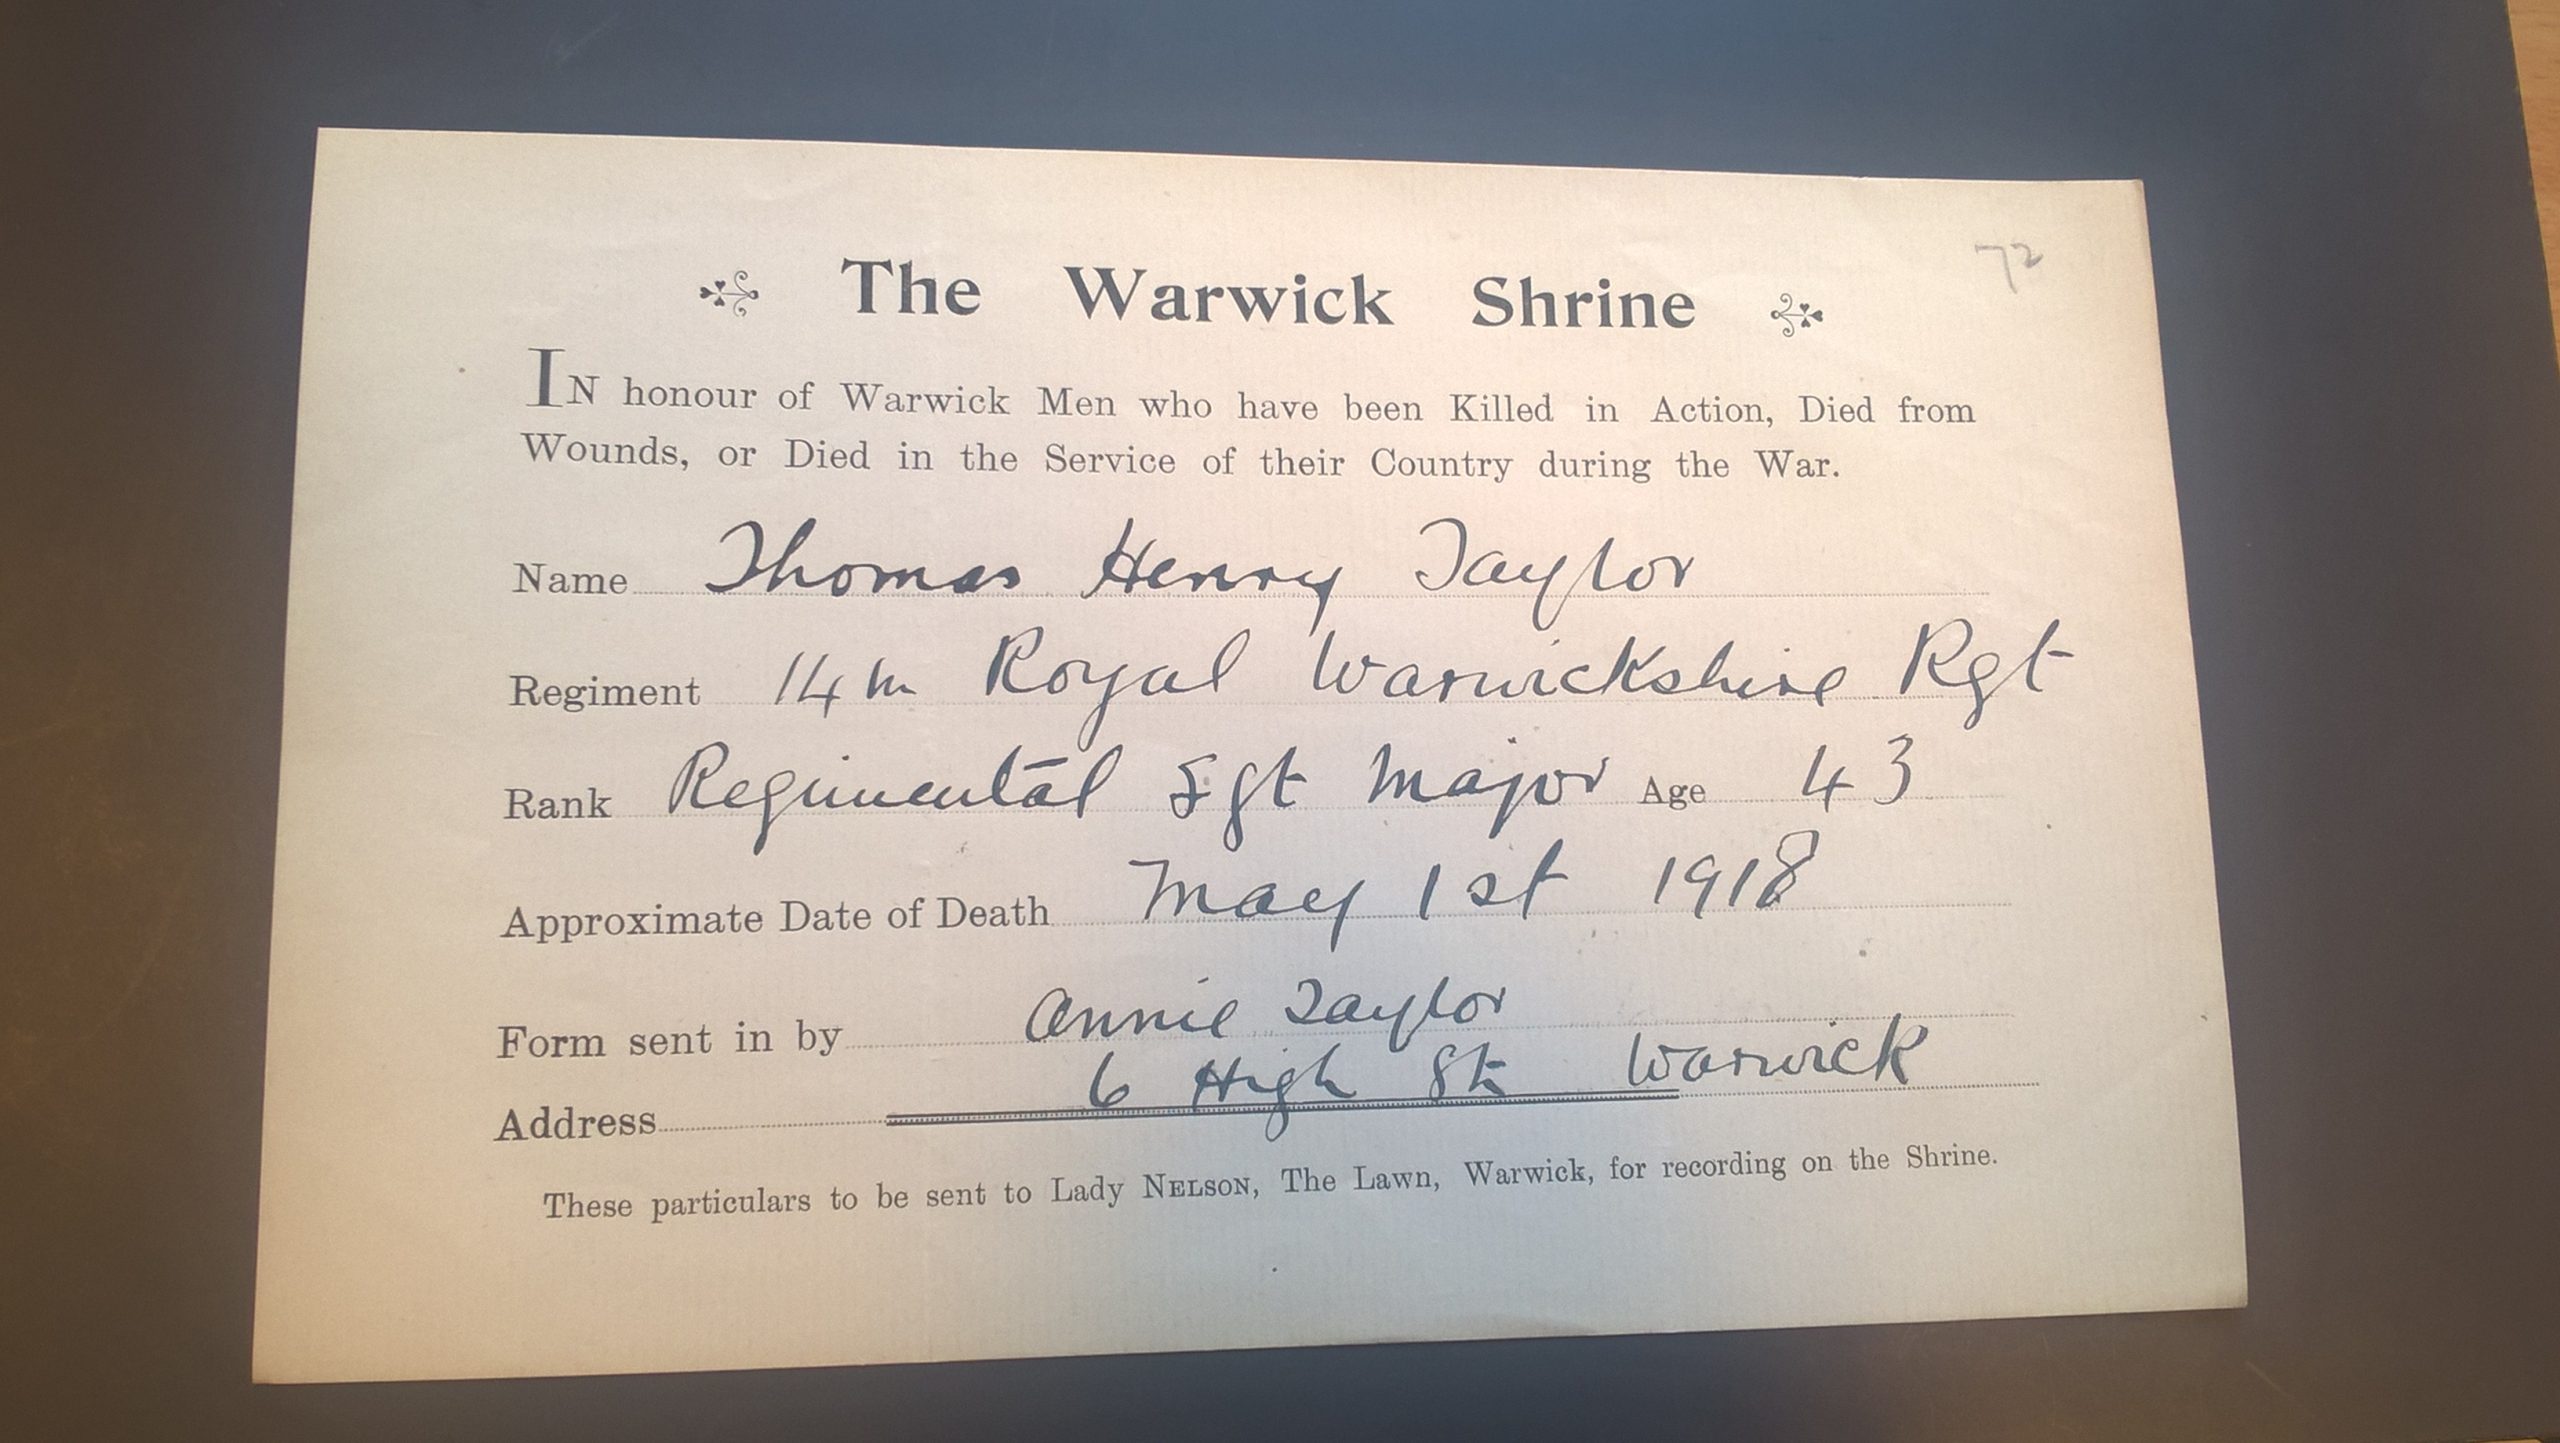 72
The Warwick Shrine
IN honour of Warwick Men who have been Killed in Action, Died from
Wounds, or Died in the Service of their Country during the War.
Name Thomas Henry Taylor
Regiment 14th Royal Warwickshire Rgt
Rank Regimental Sgt Major Age 43
Approximate Date of Death May 1st 1918
Form sent in by Annie Taylor
Address 6 High St Warwick
These particulars to be sent to Lady NELSON, The Lawn, Warwick, for recording on the Shrine.